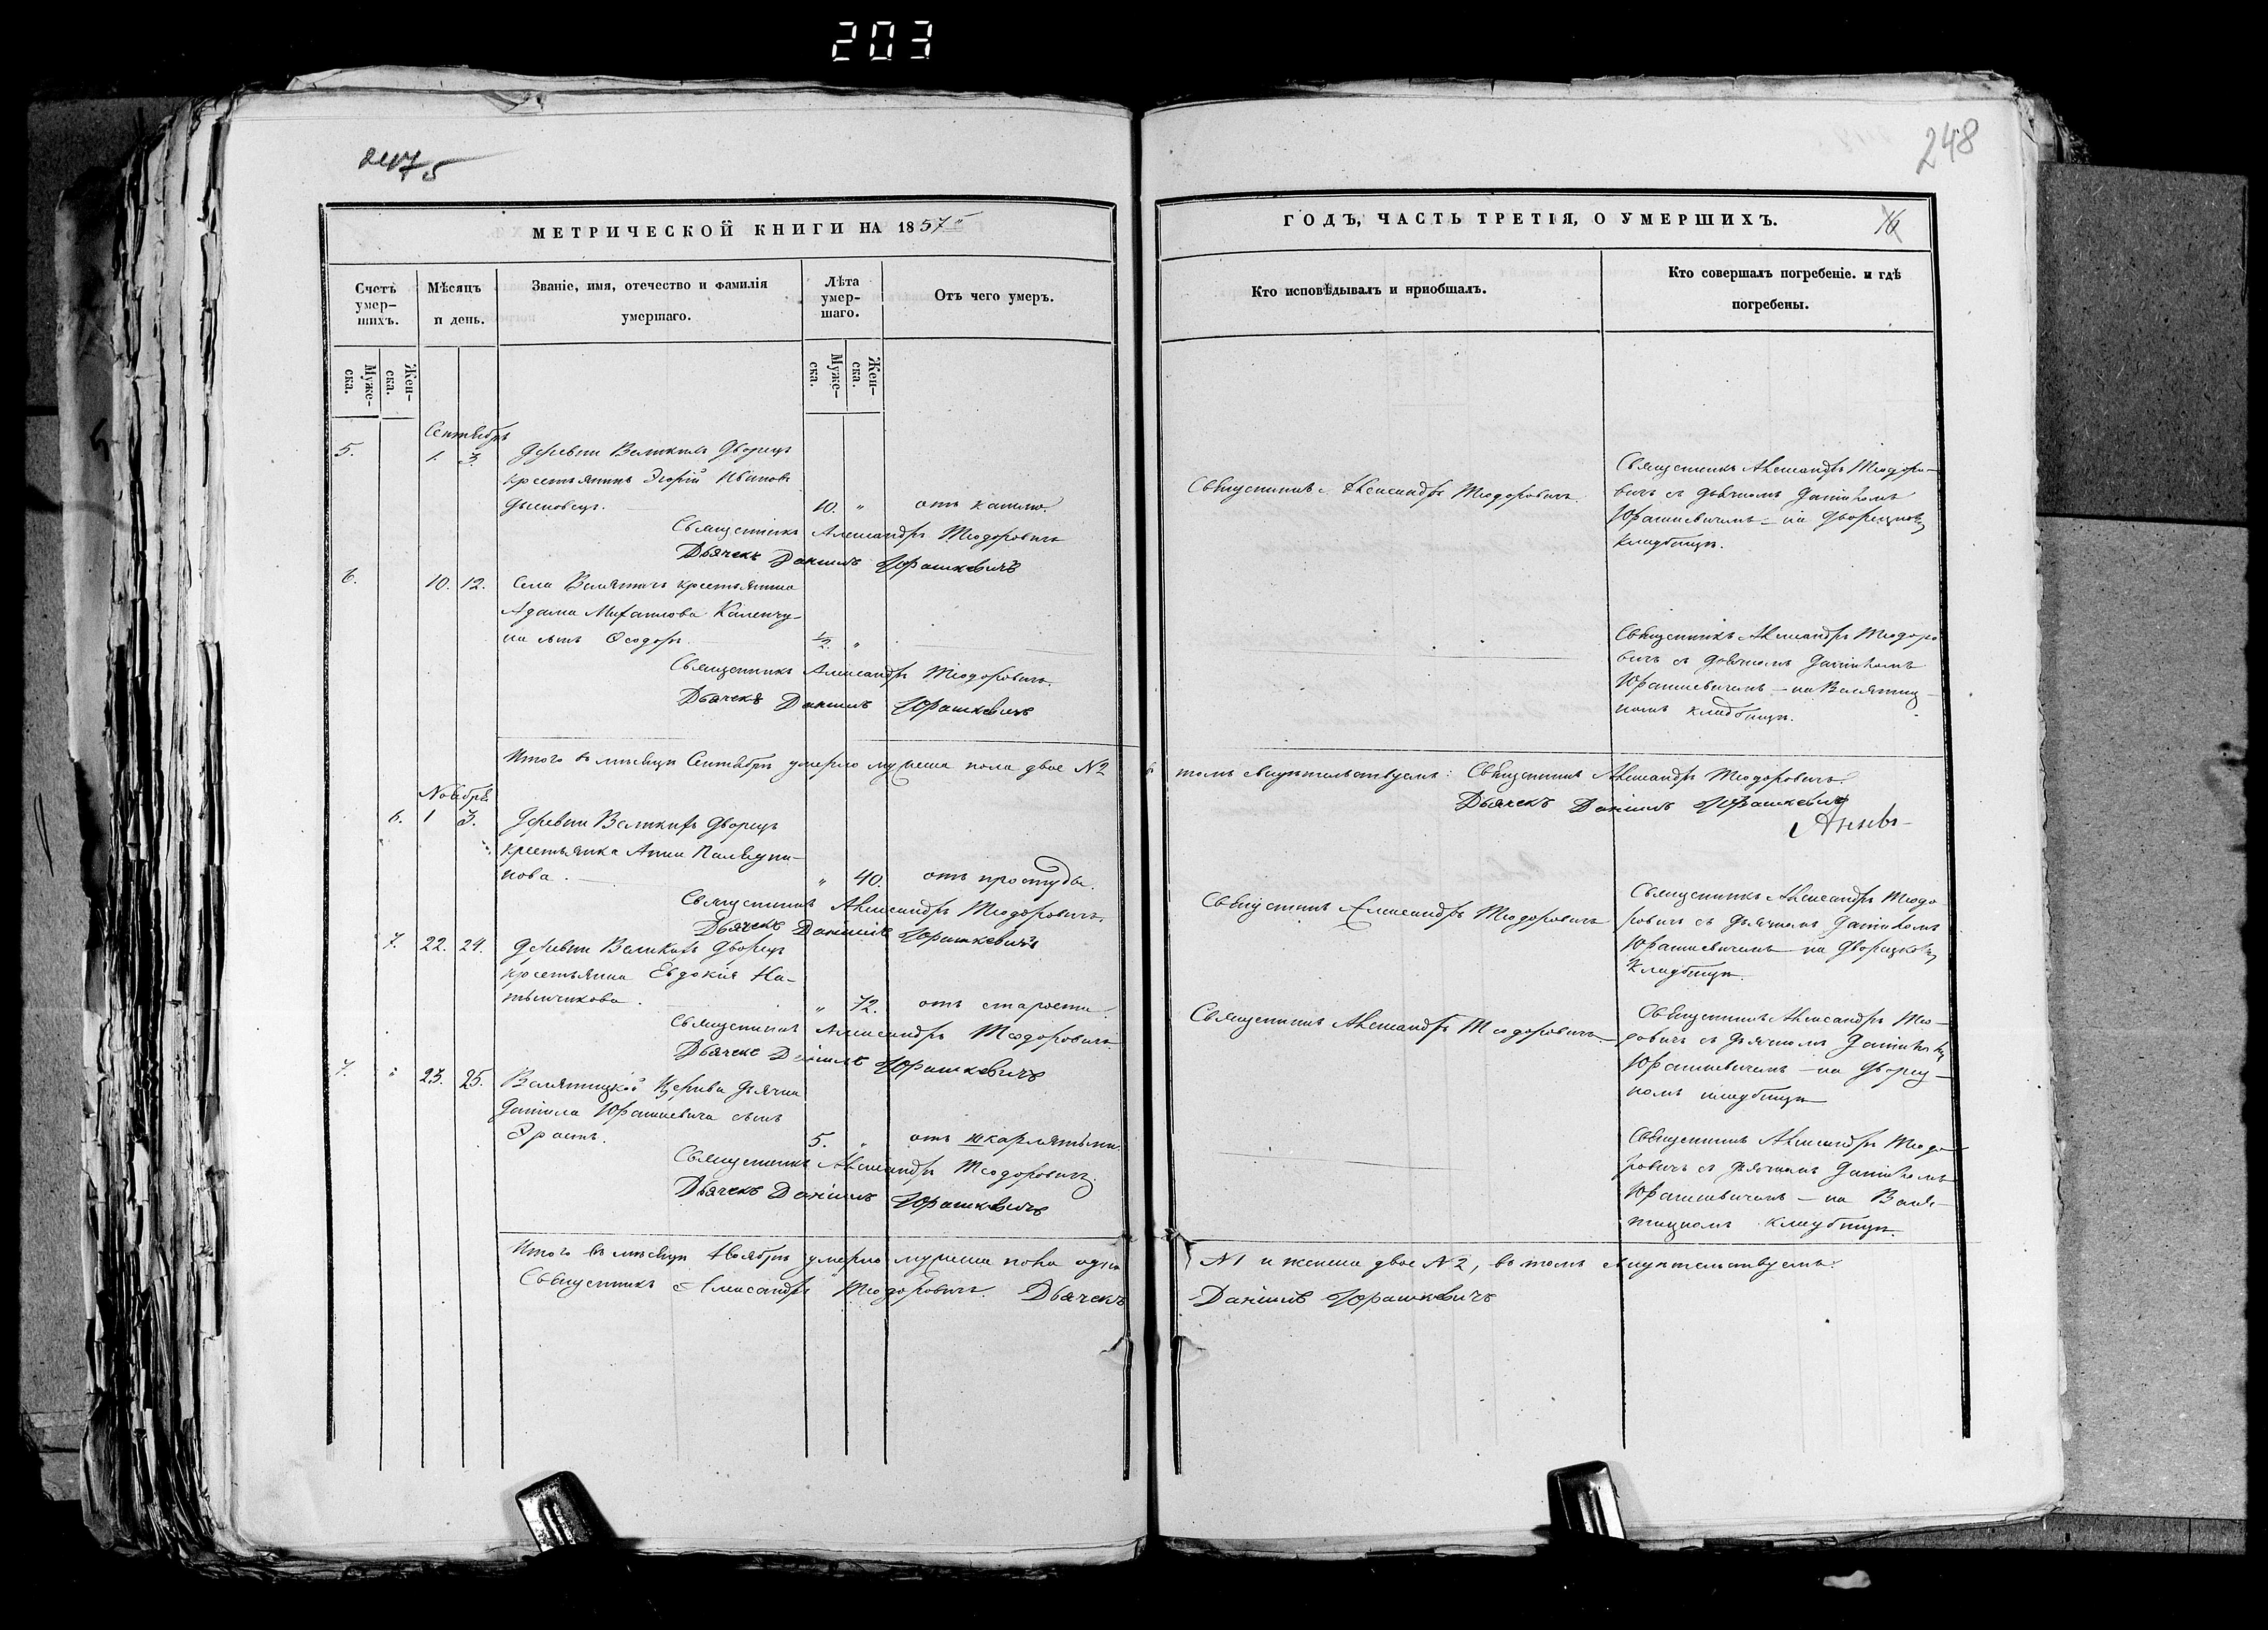 203
247
5
248
МЕТРИЧЕСКОЙ КНИГИ НА 1857
ГОДЪ, ЧАСТЬ ТРЕТІЯ, О УМЕРШИХЪ.
16
Счетъ умер-
шихъ.
Мѣсяцъ
и день.
Званіе, имя, отечество и фамилія
умершаго.
Лѣта
умер-
шаго.
Отъ чего умеръ.
Кто исповѣдывалъ и пріобщалъ.
Кто совершалъ погребеніе. и гдѣ
погребены.
Муже-
ска.
Жен-
ска.
Муже-
ска.
Жен-
ска.
Сентябрь
5. 1. 3. Деревни Великихъ Дворецъ
крестьянинъ Ивановъ
10. " отъ кашлю.
Священникъ Александръ Теодоровичъ
Дьячекъ Даниилъ Юрашкевичъ
Священникъ Александръ Теодоровичъ.
Священникъ Александръ Теодоро-
вичъ съ дьячкомъ Даніиломъ
Юрашкевичемъ – на
кладбищѣ.
6. 10. 12. Села Велятичъ крестьянина
Адама Михаилова
на сынъ Ѳеодоръ. 1/2 "
Священникъ Александръ Теодоровичъ.
Дьячекъ Даниилъ Юрашкевичъ
Священникъ Александръ Теодоро
вичъ съ дьячкомъ Даніиломъ
Юрашкевичемъ – на Велятиц-
комъ кладбищѣ.
Итого въ мѣсяцѣ Сентябрѣ умерло мужеска пола двое №2
томъ свидѣтельствуемъ: Священникъ Александръ Теодоровичъ.
Дьячекъ Даниилъ Юрашкевичъ
Ноябрь
6. 1 3. Деревни Великихъ Дворецъ
крестьянка Анна
нова. " 40. отъ простуды.
Священникъ Александръ Теодоровичъ.
Дьячекъ Даниилъ Юрашкевичъ
Священникъ Александръ Теодоровичъ
Священникъ Александръ Теодо
ровичъ съ дьячкомъ Даніиломъ
Юрашкевичемъ – на
кладбищѣ.
7. 22. 24. Деревни Великихъ Дворецъ
Евдокія
" 72. отъ старости.
Священникъ Александръ Теодоровичъ
Дьячекъ Даниилъ Юрашкевичъ
Священникъ Александръ Теодоровичъ
Священникъ Александръ Тео-
довичъ съ дьячкомъ
Юрашкевичемъ – на Дворец-
комъ кладбищѣ
7. " 23. 25. Велятицкой Церкви дьячка
Даніила Юрашкевича сынъ
Эрастъ. 5. " отъ шкарлятыни.
Священникъ Александръ Теодоровичъ.
Дьячекъ Даниилъ Юрашкевичъ
Священникъ Александръ Теодо-
ровичъ съ дьячкомъ Даніиломъ
Юрашкевичемъ – на Веля-
тицкомъ кладбищѣ.
Итого въ мѣсяцѣ Ноябрѣ умерло мужеска пола одинъ
№1 и женска двое №2, въ томъ свидѣтельствуемъ:
Священникъ Александръ Теодоровичъ. Дьячекъ
Даниилъ Юрашкевичъ